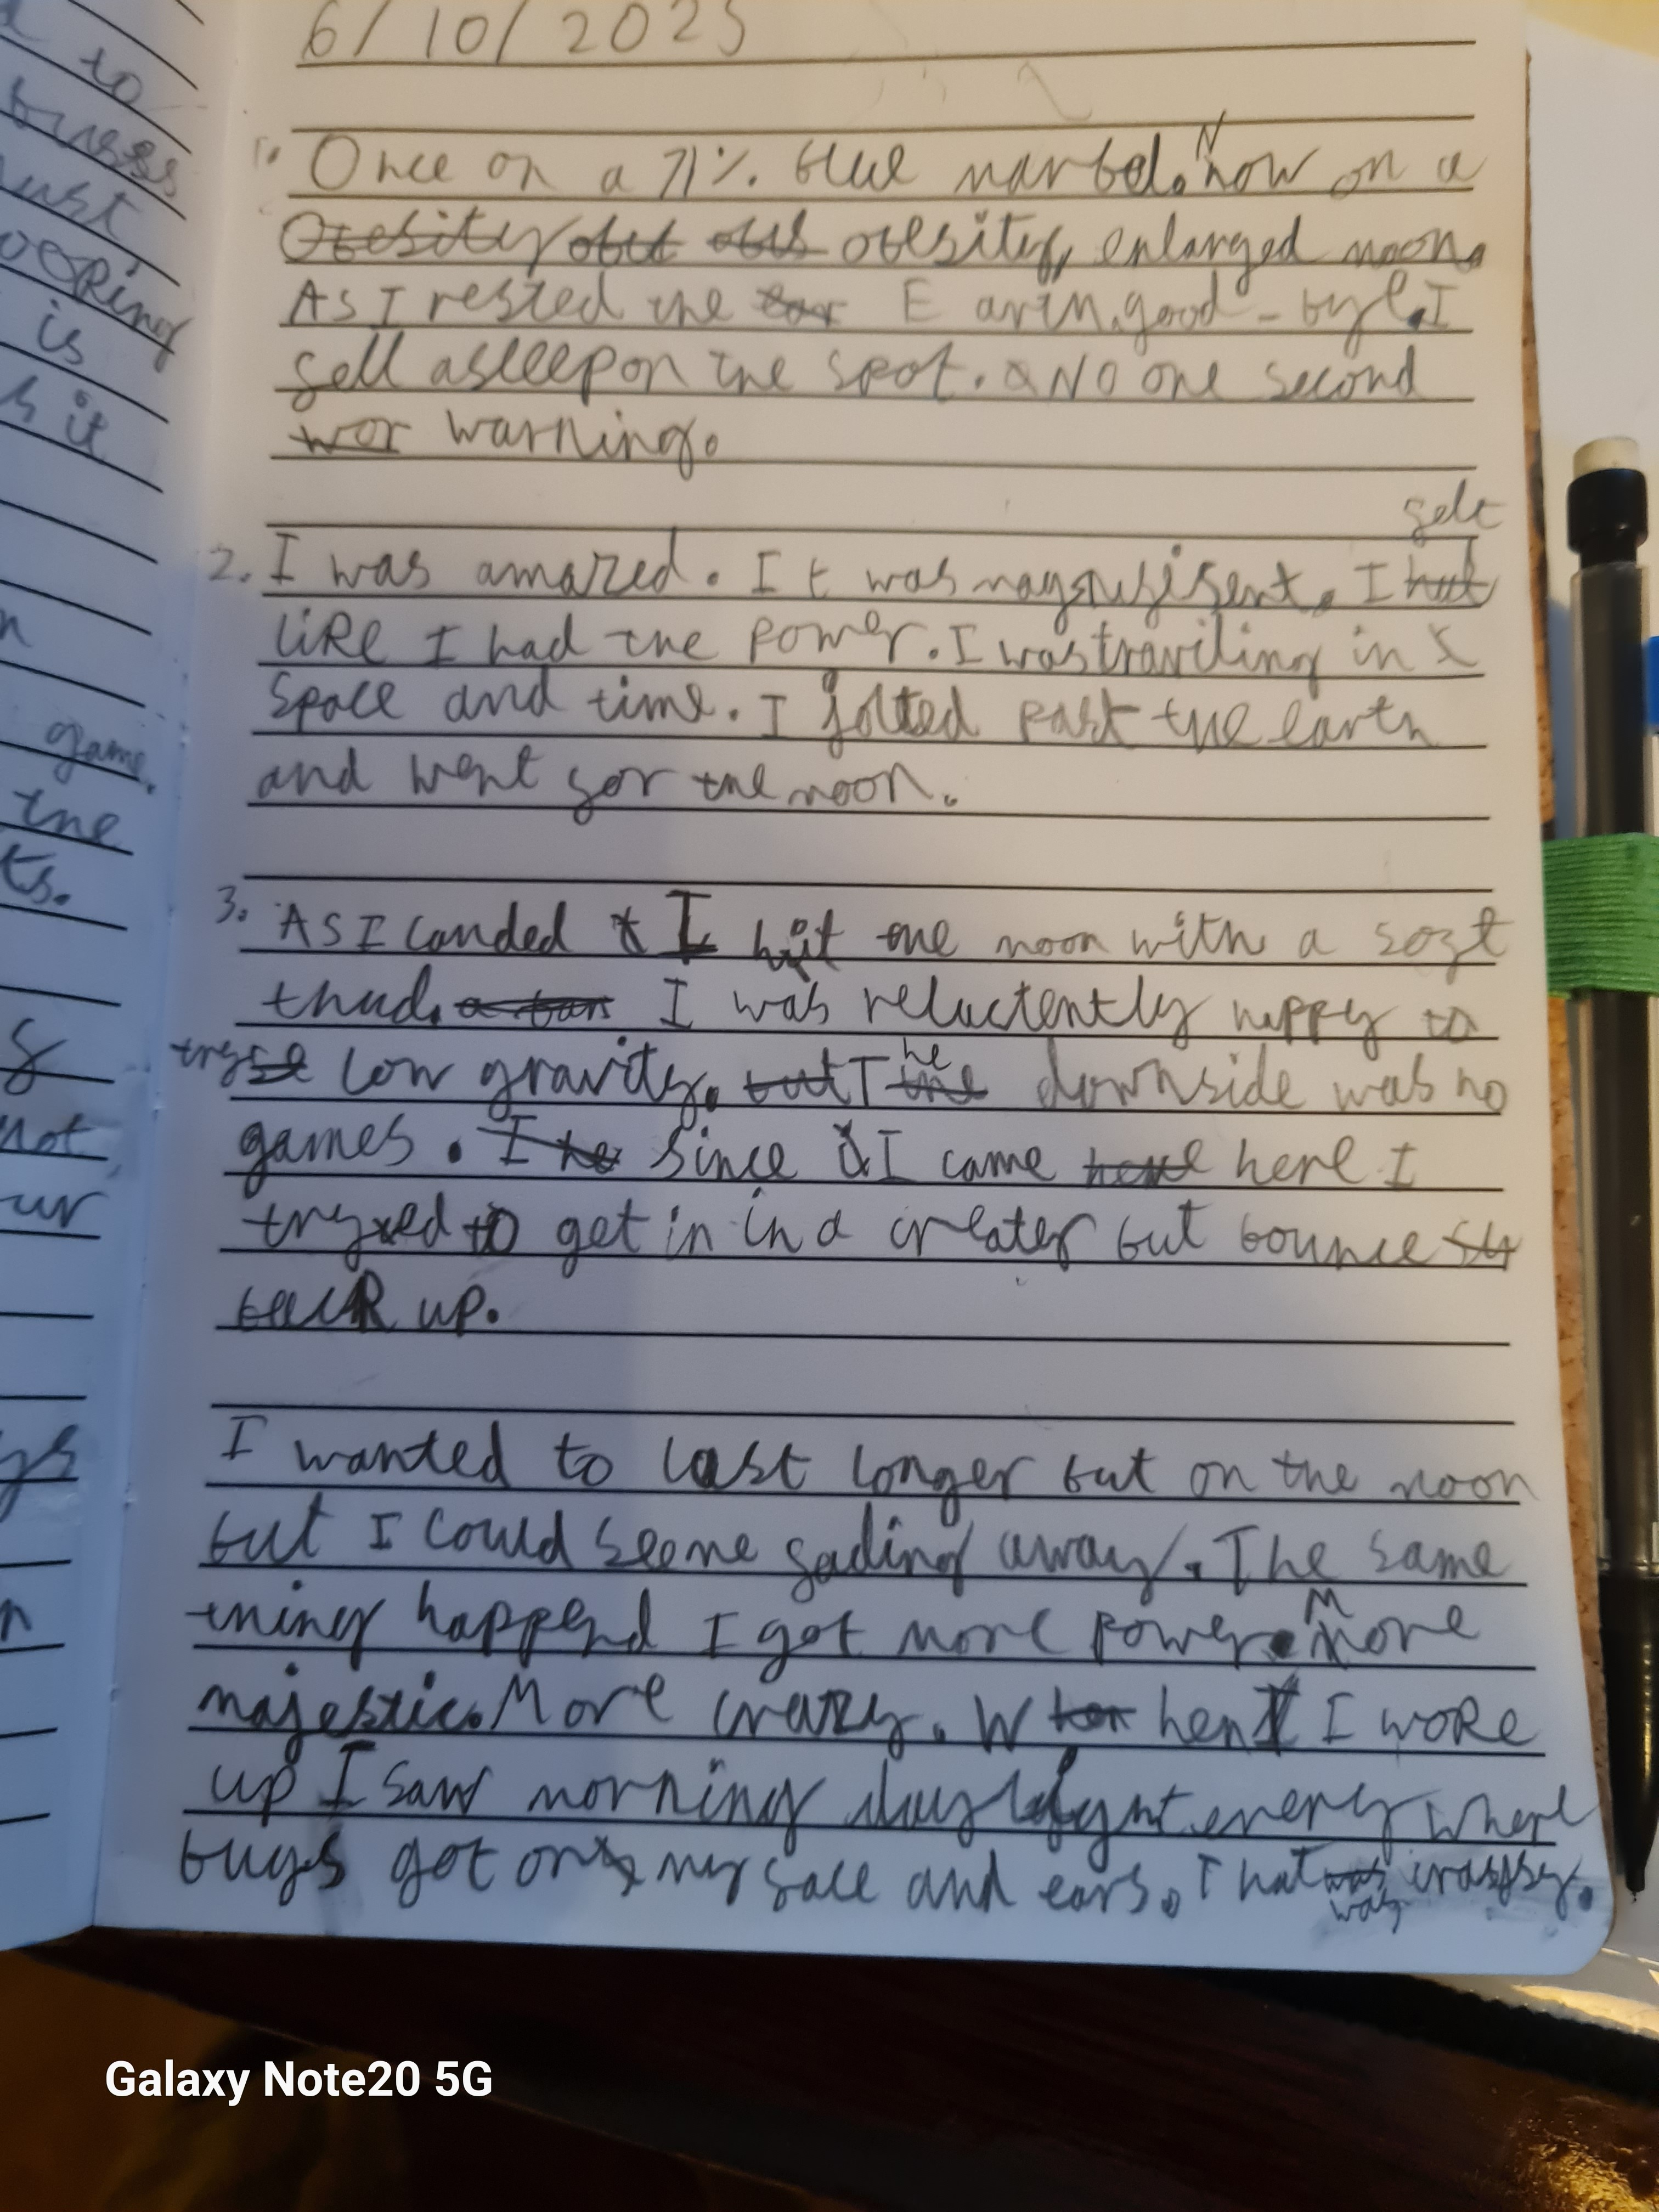 6/10/2025
1. Once on a 71% blue marbel. Now on a
Obesity obut obus obesity, enlarged moon.
As I rested the ear Earth, good-bye. I
fell asleep on the spot. No one second
wor warning.
felt
2. I was amazed. It was magnufisent. I hat
like I had the power. I was traviling in
space and time. I jolted past the earth
and went for the moon.
3. As I landed I hit the moon with a soft
thud. I was reluctently happy to
try low gravity. but The the downside was no
games. I he Since I came here I
tryed to get in in a creater but bounce
back up.
I wanted to last longer but on the moon
but I could see me fading away. The same
thing happend I got more power. More
majestic. More crazy. When I woke
up I saw morning daylight every where
bugs got on my face and ears. That was was crazy.
to
busses
ooking
is
it
game.
the
ts.
not
ur
Galaxy Note20 5G